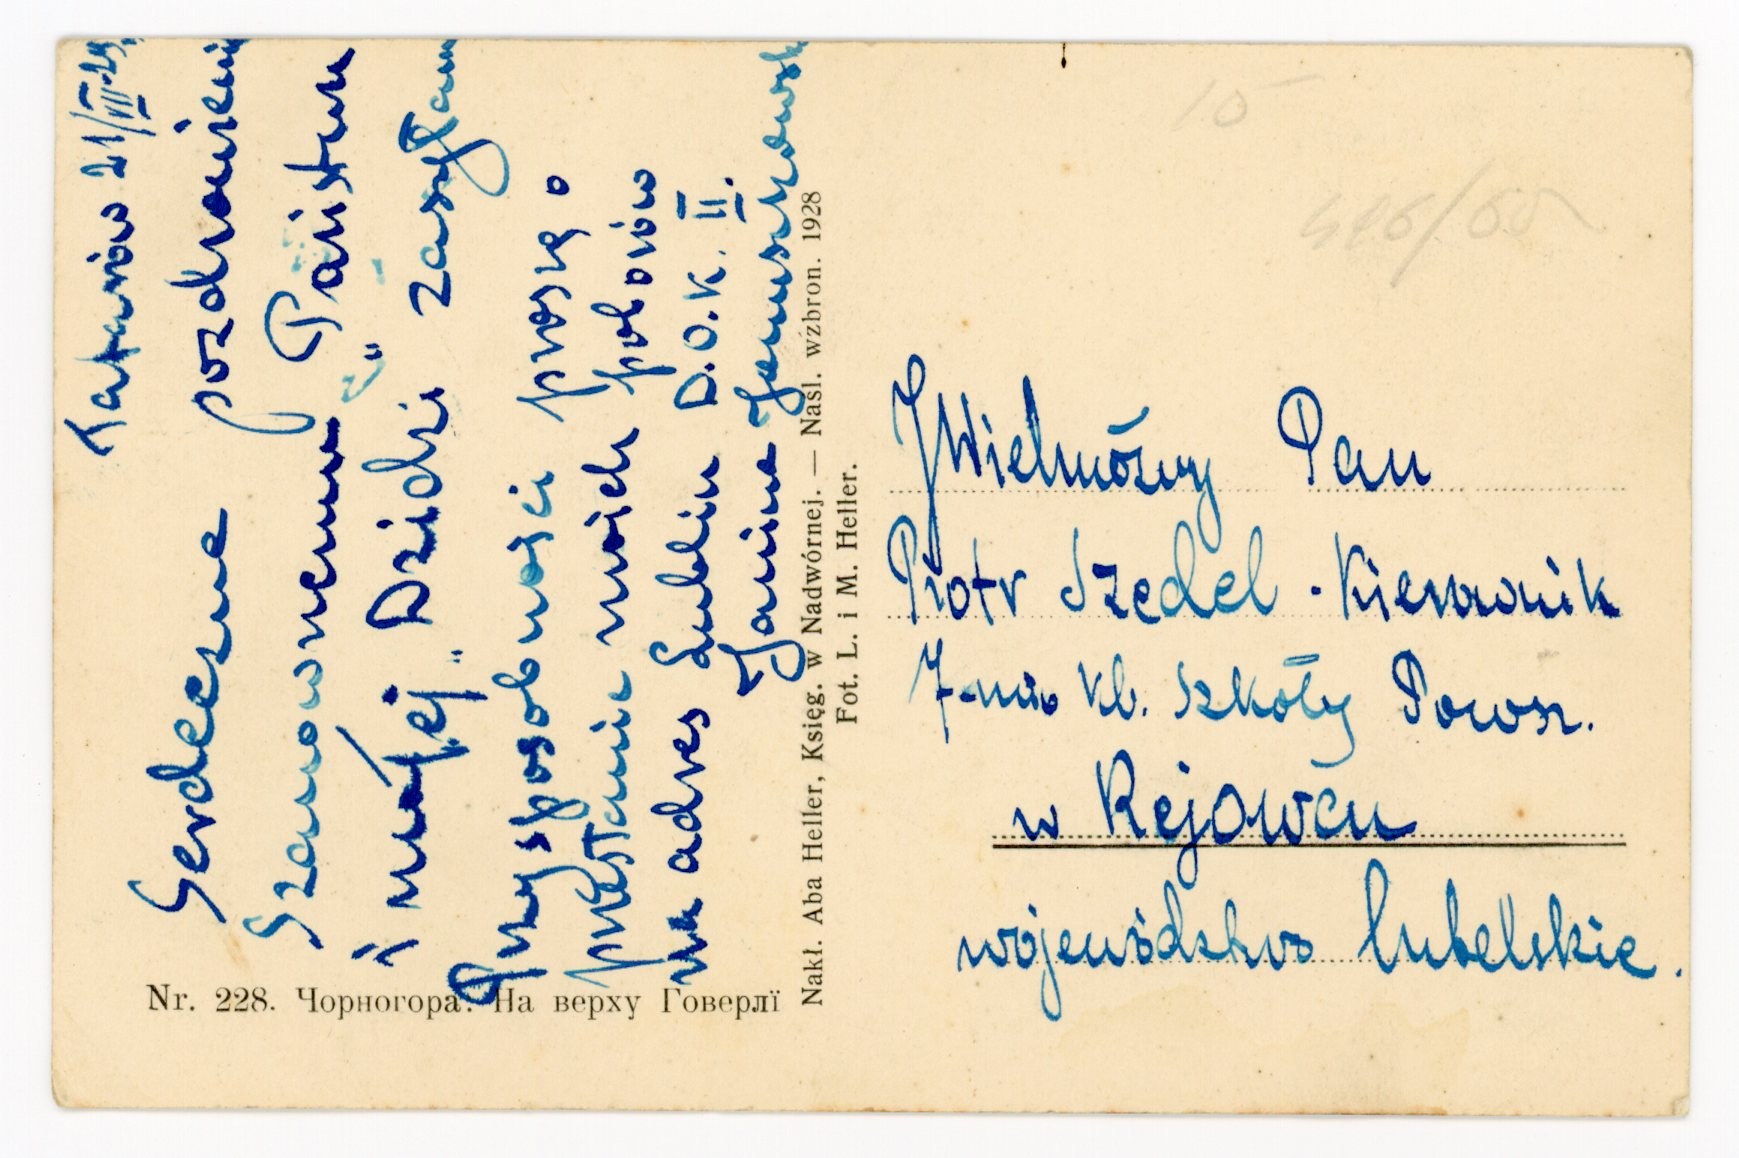 Tatarów 21/VII-29,
Serdeczne pozdrowienia
Szanownemu Państwu
i mojej „Dzidzi" zasyłam
Przysposobności proszę o
przesłanie moich poborów
na adres Lublin D.O.K. II.
Janina
Nr. 228. Чорногора. На верху Говерлї
Nakł. Aba Heller, Księg. w Nadwórnej. — Naśl. wzbron. 1928
Fot. L. i M. Heller.
10
JWielmożny Pan
Piotr Szedel - Kierownik
7-mio kl. Szkoły Powsz.
w Rejowcu
województwo lubelskie.